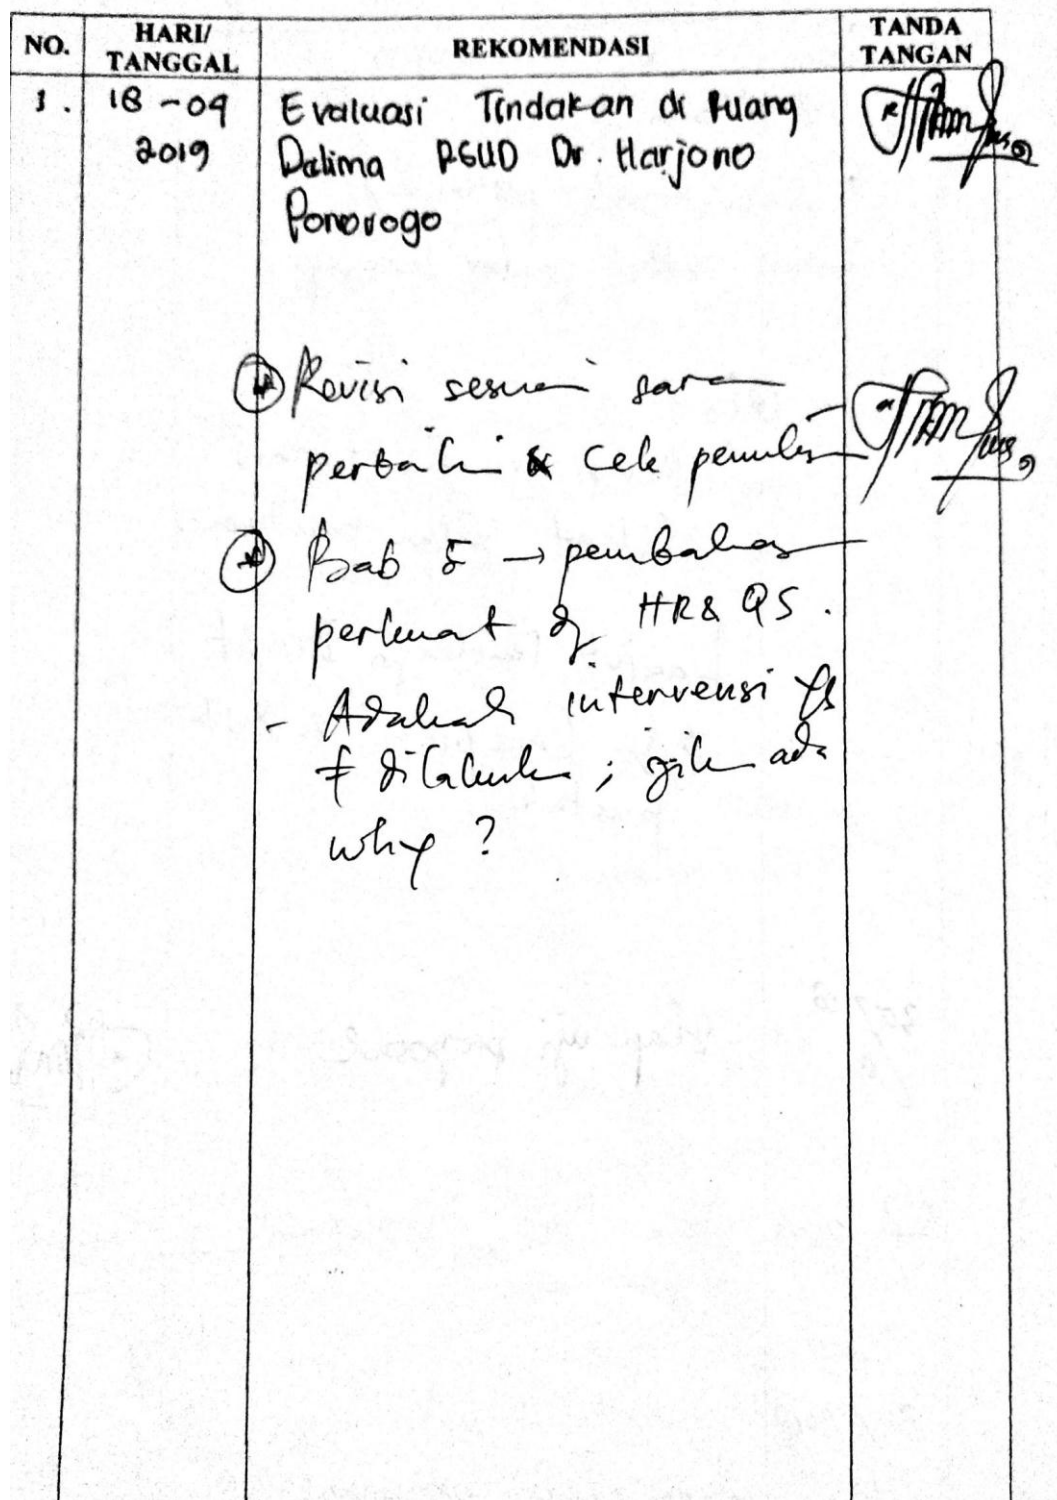 NO. HARI/ TANGGAL REKOMENDASI TANDA TANGAN
1. 18-09 Evaluasi Tindakan di Ruang
2019 Dalima RSUD Dr. Harjono
Ponorogo
Revisi sesuai saran
& cek
Bab 5 → pembahasan
perkuat dg HR & QS.
- Adakah intervensi yg
≠ ; ada
why ?